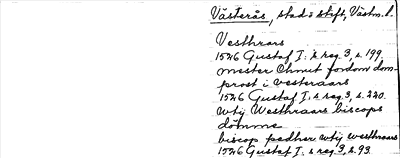 Västerås, stad o stift, Västm. l.
Vesthrars
1526 Gustaf I:s reg. 3, s. 199.
mester Cnut fordom dom-
prost i vesteraars
1526 Gustaf I:s reg. 3, s. 220.
wtij Westhraars biscops
dömme
biscop pedher wtij westhraars
1526 Gustaf I:s reg. 3, s. 93.